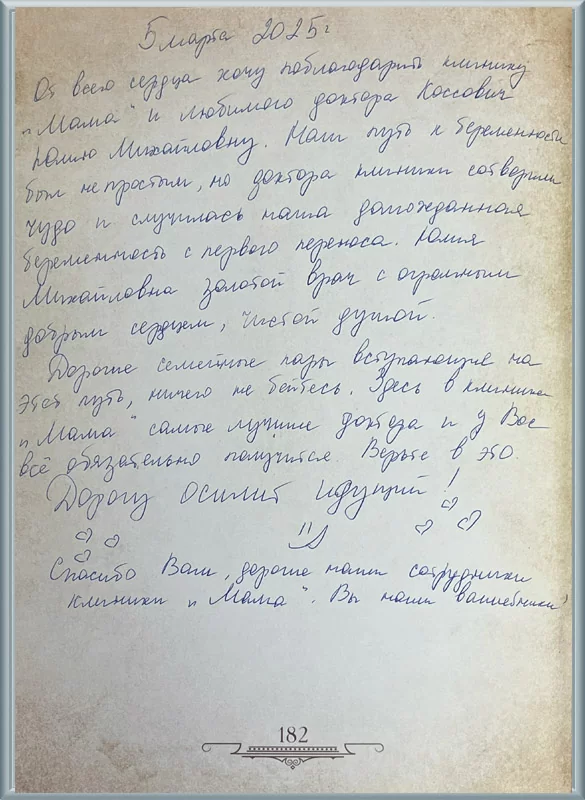 5 марта 2025г
От всего сердца хочу поблагодарить клинику
"Мама" и любимого доктора Коссович
Юлию Михайловну. Наш путь к беременности
был непростым, но доктора клиники сотворили
чудо и случилась наша долгожданная
беременность с первого переноса. Юлия
Михайловна золотой врач с огромным
добрым сердцем, чистой душой.
Дорогие семейные пары вступающие на
этот путь, ничего не бойтесь. Здесь в клинике
"Мама" самые лучшие доктора и у Вас
всё обязательно получится. Верьте в это.
Дорогу осилит идущий!
Спасибо Вам, дорогие наши сотрудники
клиники "Мама". Вы наши волшебники!
182